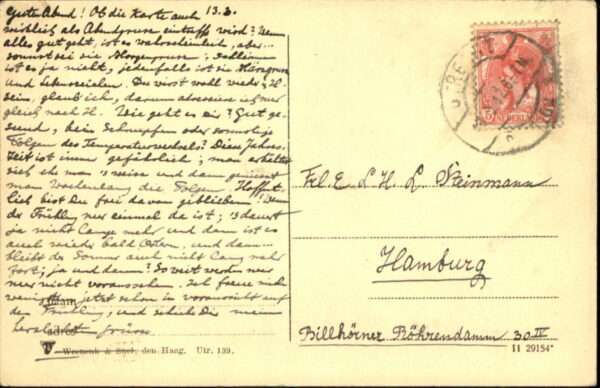 Guten Abend! Ob die Karte auch 13.3.
wirklich als Abendgruss eintreffen wird? Wenn
alles gut geht, ist es wahrscheinlich, aber...
sonst sei sie Morgengruss; Schlimm
ist es ja nicht, jedenfalls ist sie
und Lebenszeichen. Du wirst wohl wieder i. H.
sein, glaub ich, darum adressiere ich
gleich nach H. Wie geht es dir? Gut ge-
sund, kein Schnupfen oder sonstige
Folgen des Temperaturwechsels? Diese Jahres-
zeit ist immer gefährlich; man erkältet
sich ehe man 's weiss und dann
man Wochenlang die Folgen. Hoffent-
lich bist Du frei davon geblieben! Wenn
der Frühling nur einmal da ist; 's dauert
ja nicht lange mehr und dann ist es
auch wieder bald Ostern, und dann...
bleibt der Sommer auch nicht lang mehr
fort; ja und dann? So weit werden wir
nur nicht voraussehen. Ich freue mich
wenigstens jetzt schon in voraus auf
den Frühling, und schicke Dir meine
Frl. E. L. H. L. Steinmann
Hamburg
Billhörner Röhrendamm 30 IV
den Haag. Utr. 139.
H 29154*